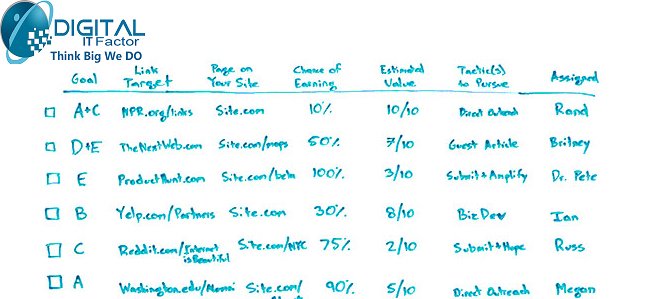 DIGITAL
IT Factor
Think Big We DO
Goal Link Target Page on Your Site Chance of Earning Estimated Value Tactic(s) to Pursue Assigned
A+C NPR.org/links Site.com 10% 10/10 Direct Outreach Rand
D+E TheNextWeb.com Site.com/maps 50% 7/10 Guest Article Britney
E ProductHunt.com Site.com/beta 100% 3/10 Submit + Amplify Dr. Pete
B Yelp.com/Partners Site.com 30% 8/10 Biz Dev Ian
C Reddit.com/Internet is Beautiful Site.com/NYC 75% 2/10 Submit + Hope Russ
A Washington.edu/ Site.com/ 90% 5/10 Direct Outreach Megan